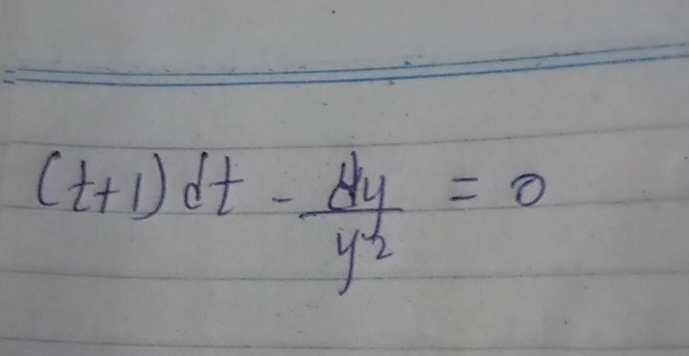 (t+1) dt - dy/y² = 0